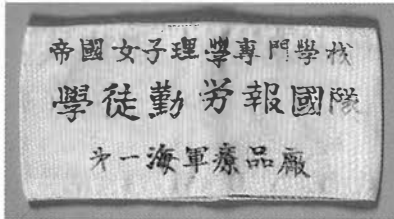 帝國女子理學專門學校
學徒勤労報國隊
第一海軍療品廠